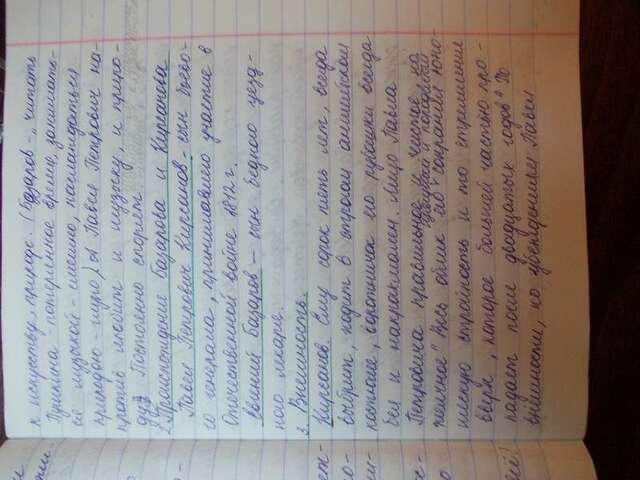 к искусству, природе. (Базаров - „читать
Пушкина - потерянное время, занимать-
ся музыкой - смешно, наслаждаться
природою - глупо) а Павел Петрович на-
против любит и музыку, и приро-
ду. Постоянно спорит
2. Происхождение Базарова и Кирсанова
Павел Петрович Кирсанов - сын боево-
го генерала, принимавшего участие в
Отечественной войне 1812 г.
Евгений Базаров - сын бедного уезд-
ного лекаря.
3. Внешность.
Кирсанов. Ему сорок пять лет, всегда
выбрит, ходит в строгом английском
костюме, воротничок его рубашки всегда
бел и накрахмален. Лицо Павла
Петровича правильное
Весь облик его сохранил юно-
шескую стройность и то стремление
вверх, которое большей частью про-
падает после двадцатых годов" По
внешности, по убеждениям Павел